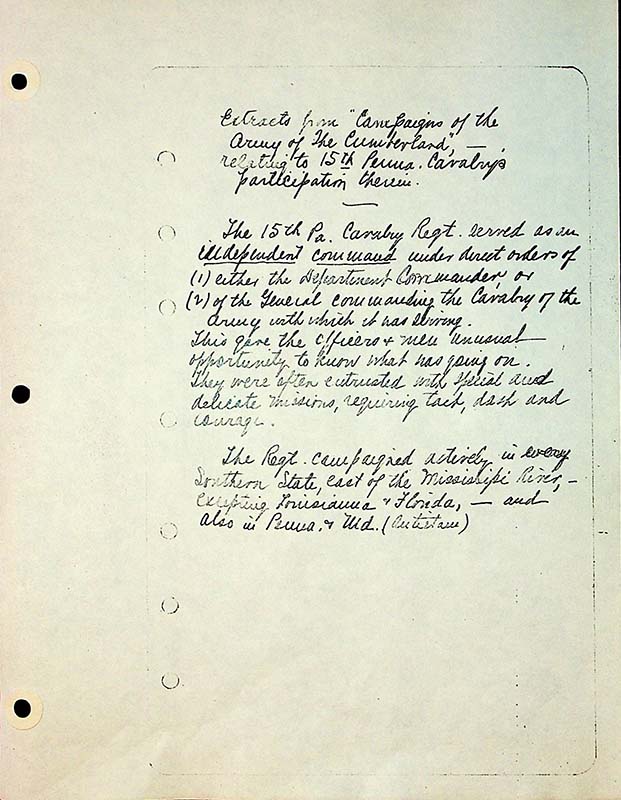 Extracts from "Campaigns of the
Army of The Cumberland", —
relating to 15th Penna. Cavalry's
participation therein.
The 15th Pa. Cavalry Regt. served as an
independent command under direct orders of
(1) either the Department Commander, or
(2) of the General commanding the Cavalry of the
Army with which it was serving.
This gave the officers & men unusual
opportunity to know what was going on.
They were often entrusted with special and
delicate missions, requiring tact, dash and
courage.
The Regt. campaigned actively in every
Southern State, east of the Mississippi River, –
excepting Louisianna & Florida, — and
also in Penna. & Md. (Antietam)